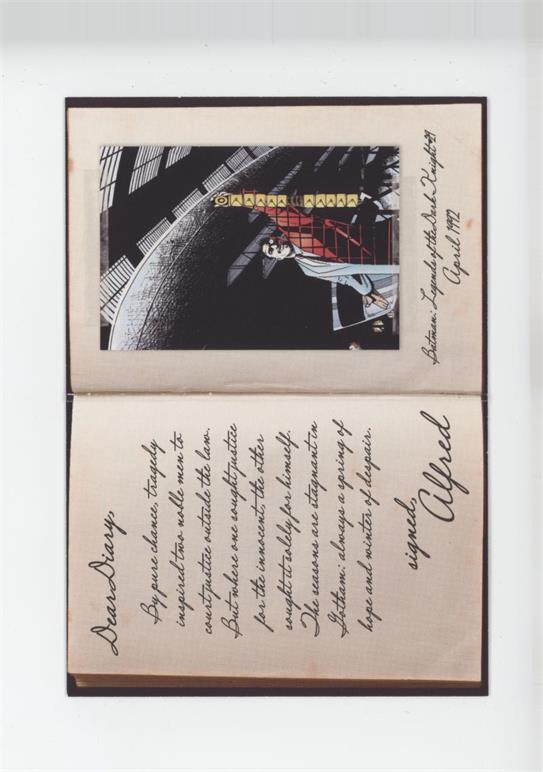 Dear Diary,
By pure chance, tragedy
inspired two noble men to
court justice outside the law.
But where one sought justice
for the innocent, the other
sought it solely for himself.
The seasons are stagnant in
Gotham: always a spring of
hope and winter of despair.
signed,
Alfred
Batman: Legends of the Dark Knight #21
April 1992